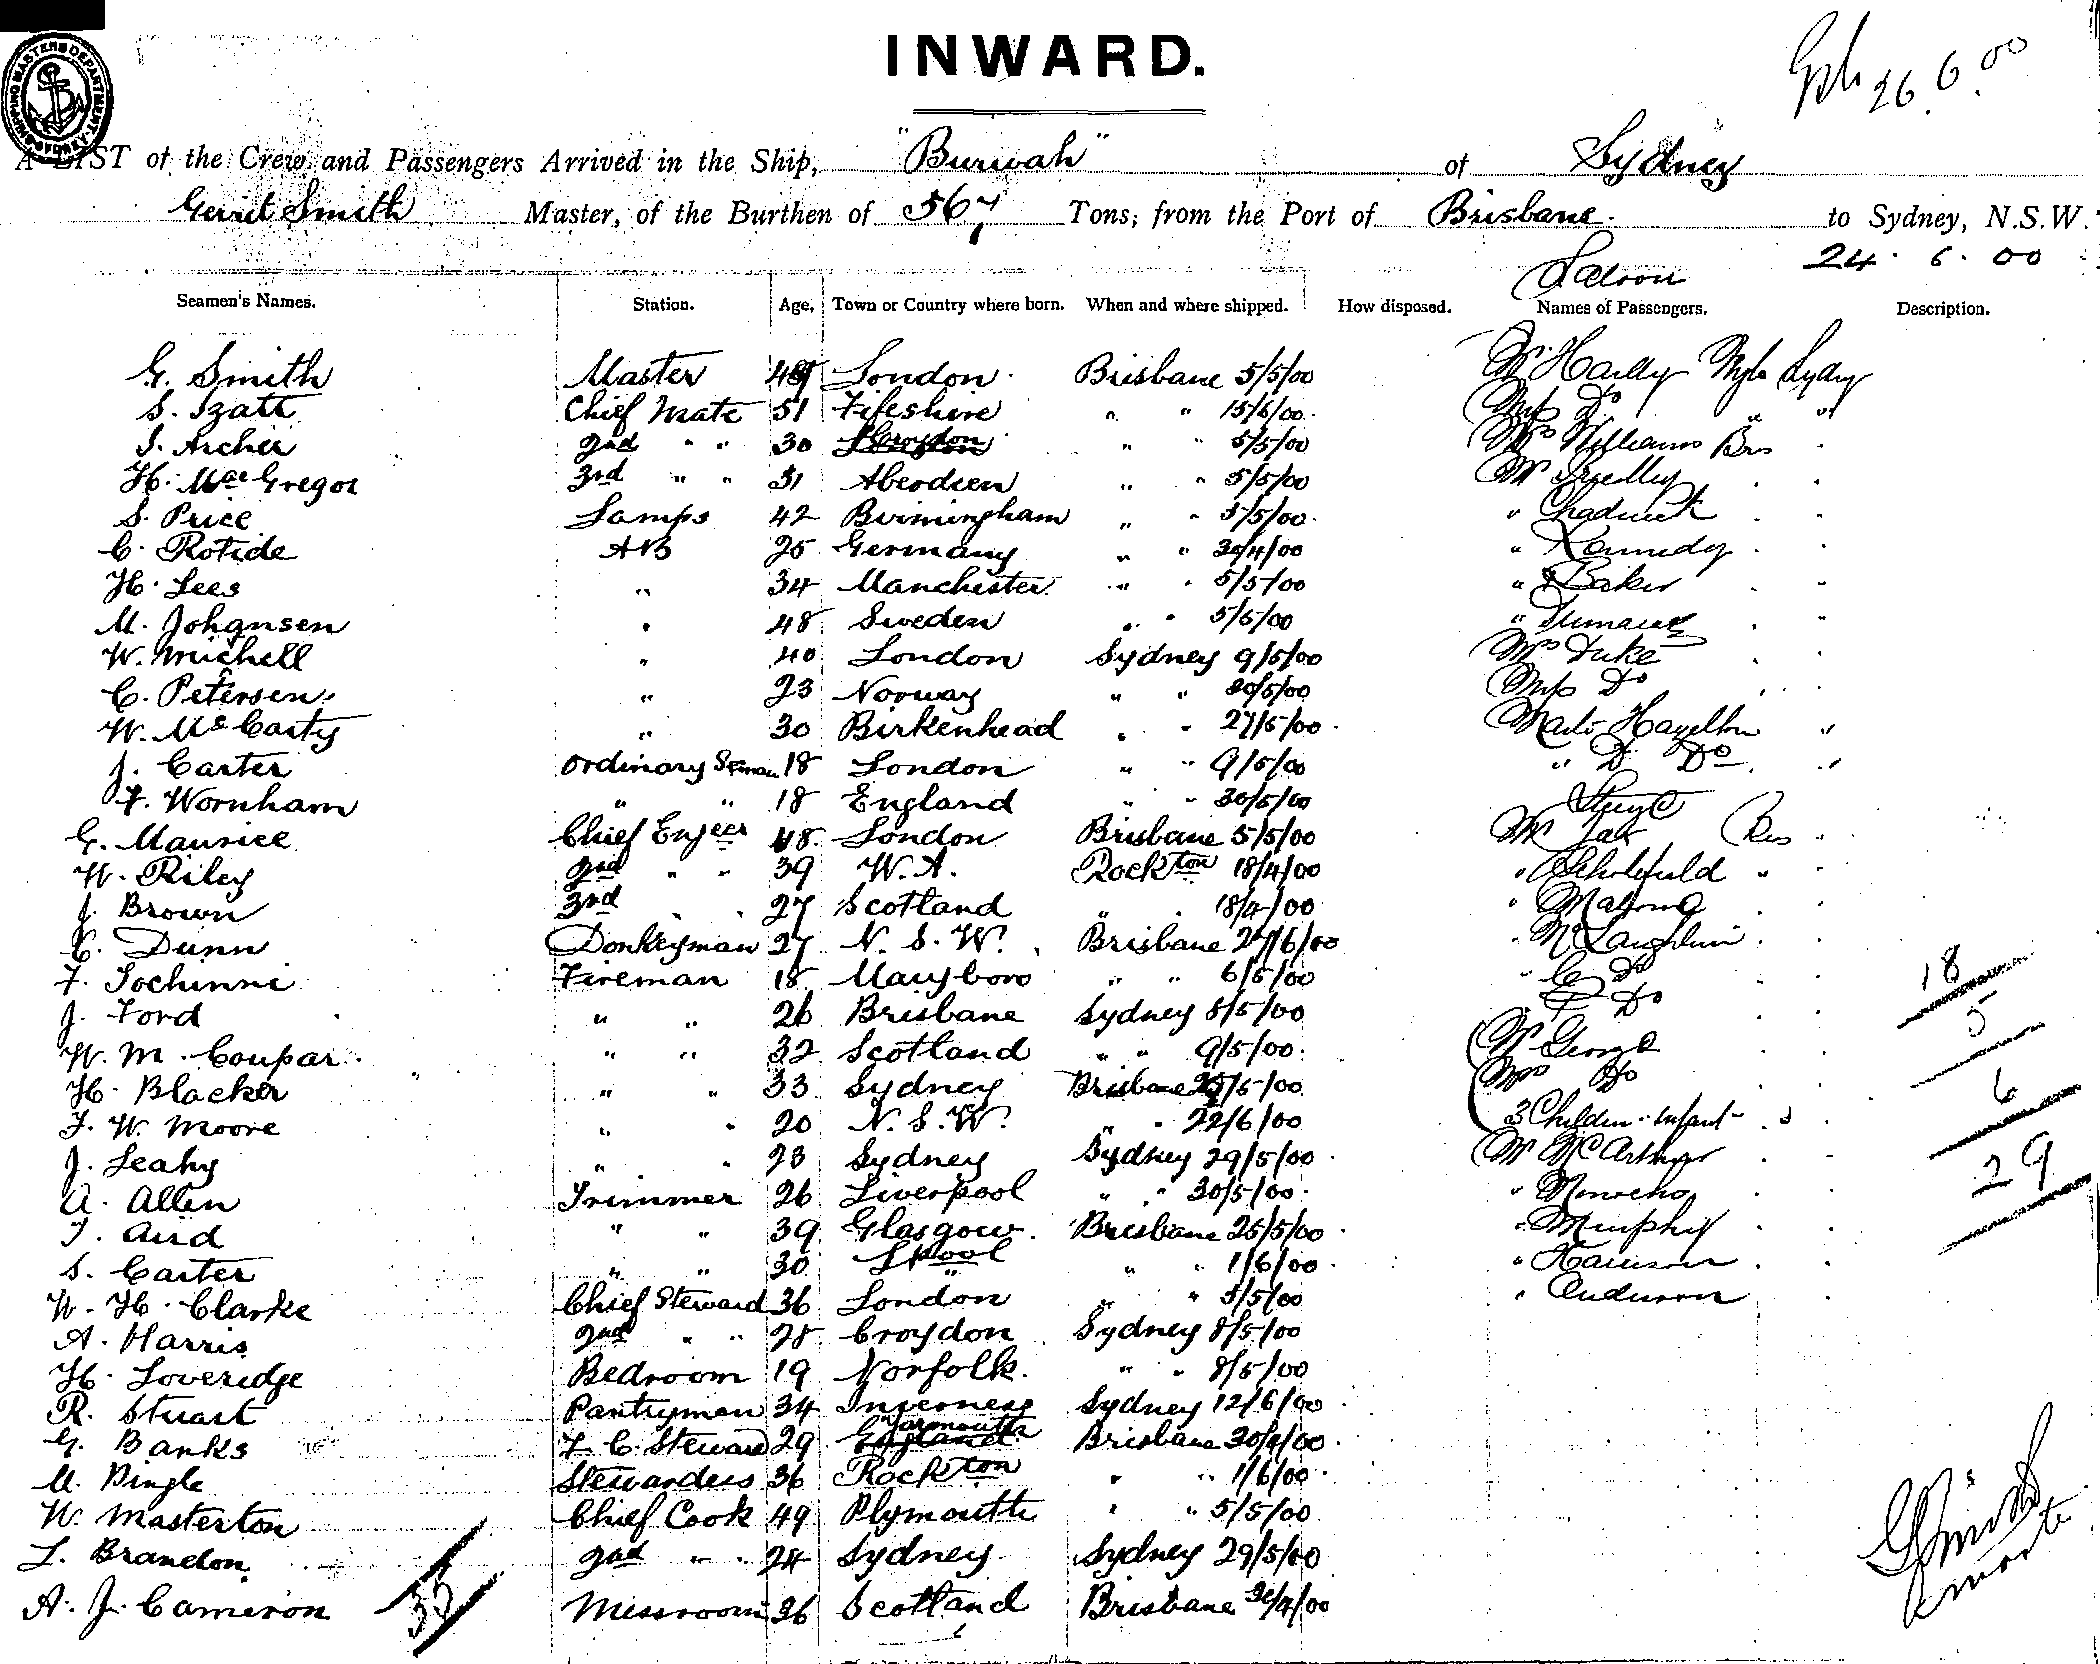 INWARD.
26.6.00
SHIPPING MASTERS DEPARTMENT
A LIST of the Crew and Passengers Arrived in the Ship, "Burwah" of Sydney
Gerrit Smith Master, of the Burthen of 567 Tons, from the Port of Brisbane to Sydney, N.S.W.
Saloon 24.6.00
Seamen's Names. Station. Age. Town or Country where born. When and where shipped. How disposed. Names of Passengers. Description.
G. Smith Master London Brisbane 5/5/00 Mr Hardy
S. Izatt Chief Mate 51 Fifeshire " " 15/6/00 Mrs Do " "
J. Archer 2nd " " 30 " " 5/5/00 Williams
H. MacGregor 3rd " " 31 Aberdeen " " 5/5/00 Mr
S. Price Lamps 42 Birmingham " " 5/5/00 " Chadwick
C. Rotide AB 25 Germany " " 30/4/00 " Kennedy
H. Lees " 34 Manchester " " 5/5/00 " Baker
M. Johansen " 48 Sweden " " 5/5/00 "
W. Michell " 40 London Sydney 9/5/00 Mr Duke
C. Petersen " 23 Norway " " 30/5/00 Mrs Do
W. McCarty " 30 Birkenhead " " 27/5/00
J. Carter Ordinary Seman 18 London " " 9/5/00 " D. Do
F. Wornham " " 18 England " " 30/5/00
G. Maurice Chief Engeer 48 London Brisbane 5/5/00 Mr
W. Riley 2nd " " 39 W.A. Rockton 18/4/00 " Scholefield "
J. Brown 3rd " " 27 Scotland " " 18/4/00 "
C. Dunn Donkeyman 27 N.S.W. Brisbane 27/6/00 " McLaughlin
F. Tochinni Fireman 18 Maryboro " " 6/5/00 " Do
J. Ford " " 26 Brisbane Sydney 8/5/00 Do
W. M. Coupar " " 32 Scotland " " 9/5/00 Mr George
H. Blacker " " 33 Sydney Brisbane Mrs Do
F. W. Moore " " 20 N.S.W. " " 22/6/00 3 Children. Infant
J. Leahy " " 23 Sydney Sydney 29/5/00 Mr McArthur
A. Allen Trimmer 26 Liverpool " " 30/5/00 "
J. Aird " " 39 Glasgow Brisbane 25/5/00 " Murphy
S. Carter " " 30 L'pool " " 1/6/00 " Harrison
W. H. Clarke Chief Steward 36 London " " 5/5/00 " Anderson
A. Harris 2nd " " 28 Croydon Sydney 8/5/00
H. Loveridge Bedroom 19 Norfolk " " 8/5/00
R. Stuart Pantryman 34 Inverness Sydney 12/6/00
G. Banks F. C. Steward 29 Yarmouth Brisbane 30/4/00
M. Pingle Stewardess 36 Rockton " " 1/6/00
W. Masterton Chief Cook 49 Plymouth " " 5/5/00
L. Brandon 2nd " " 24 Sydney Sydney 29/5/00
A. J. Cameron Messroom 36 Scotland Brisbane 30/4/00
35
18
5
6
29